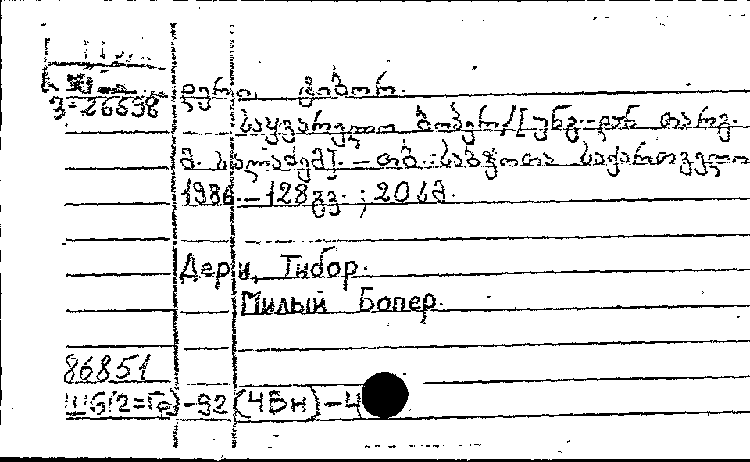 3-26698
დერი, ტიბორ.
საყვარელი ბოპერ/[უნგ-დან თარგ.
მ. სალაძემ]. – თბ.: საბჭოთა საქართველო
1986. – 128 გვ. ; 20 სმ.
Дери, Тибор.
Милый Бопер.
86851
-92 (4Вн) – 4